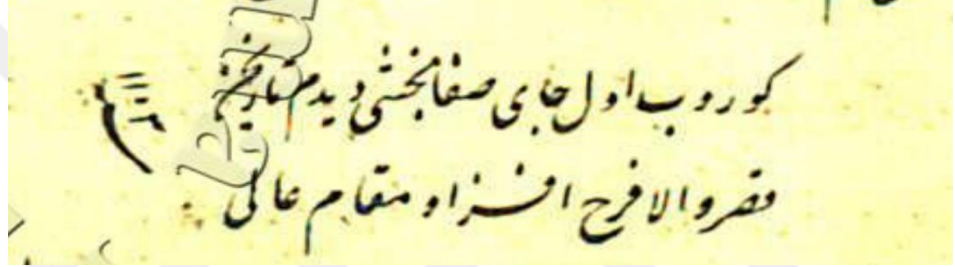 كوروب اول جاى صفابخشى ديدم تاريخ
قصر والا فرح افزا و مقام عالى